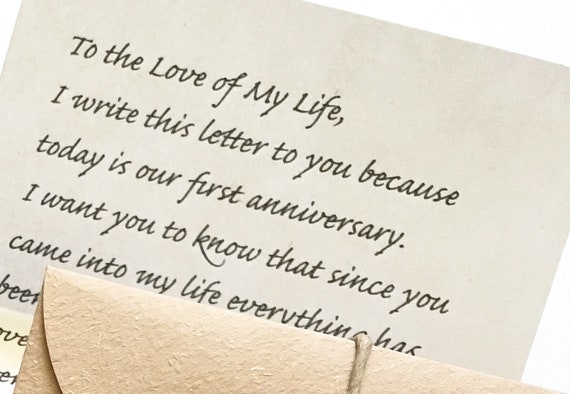 To the Love of My Life,
I write this letter to you because
today is our first anniversary.
I want you to know that since you
came into my life everything has